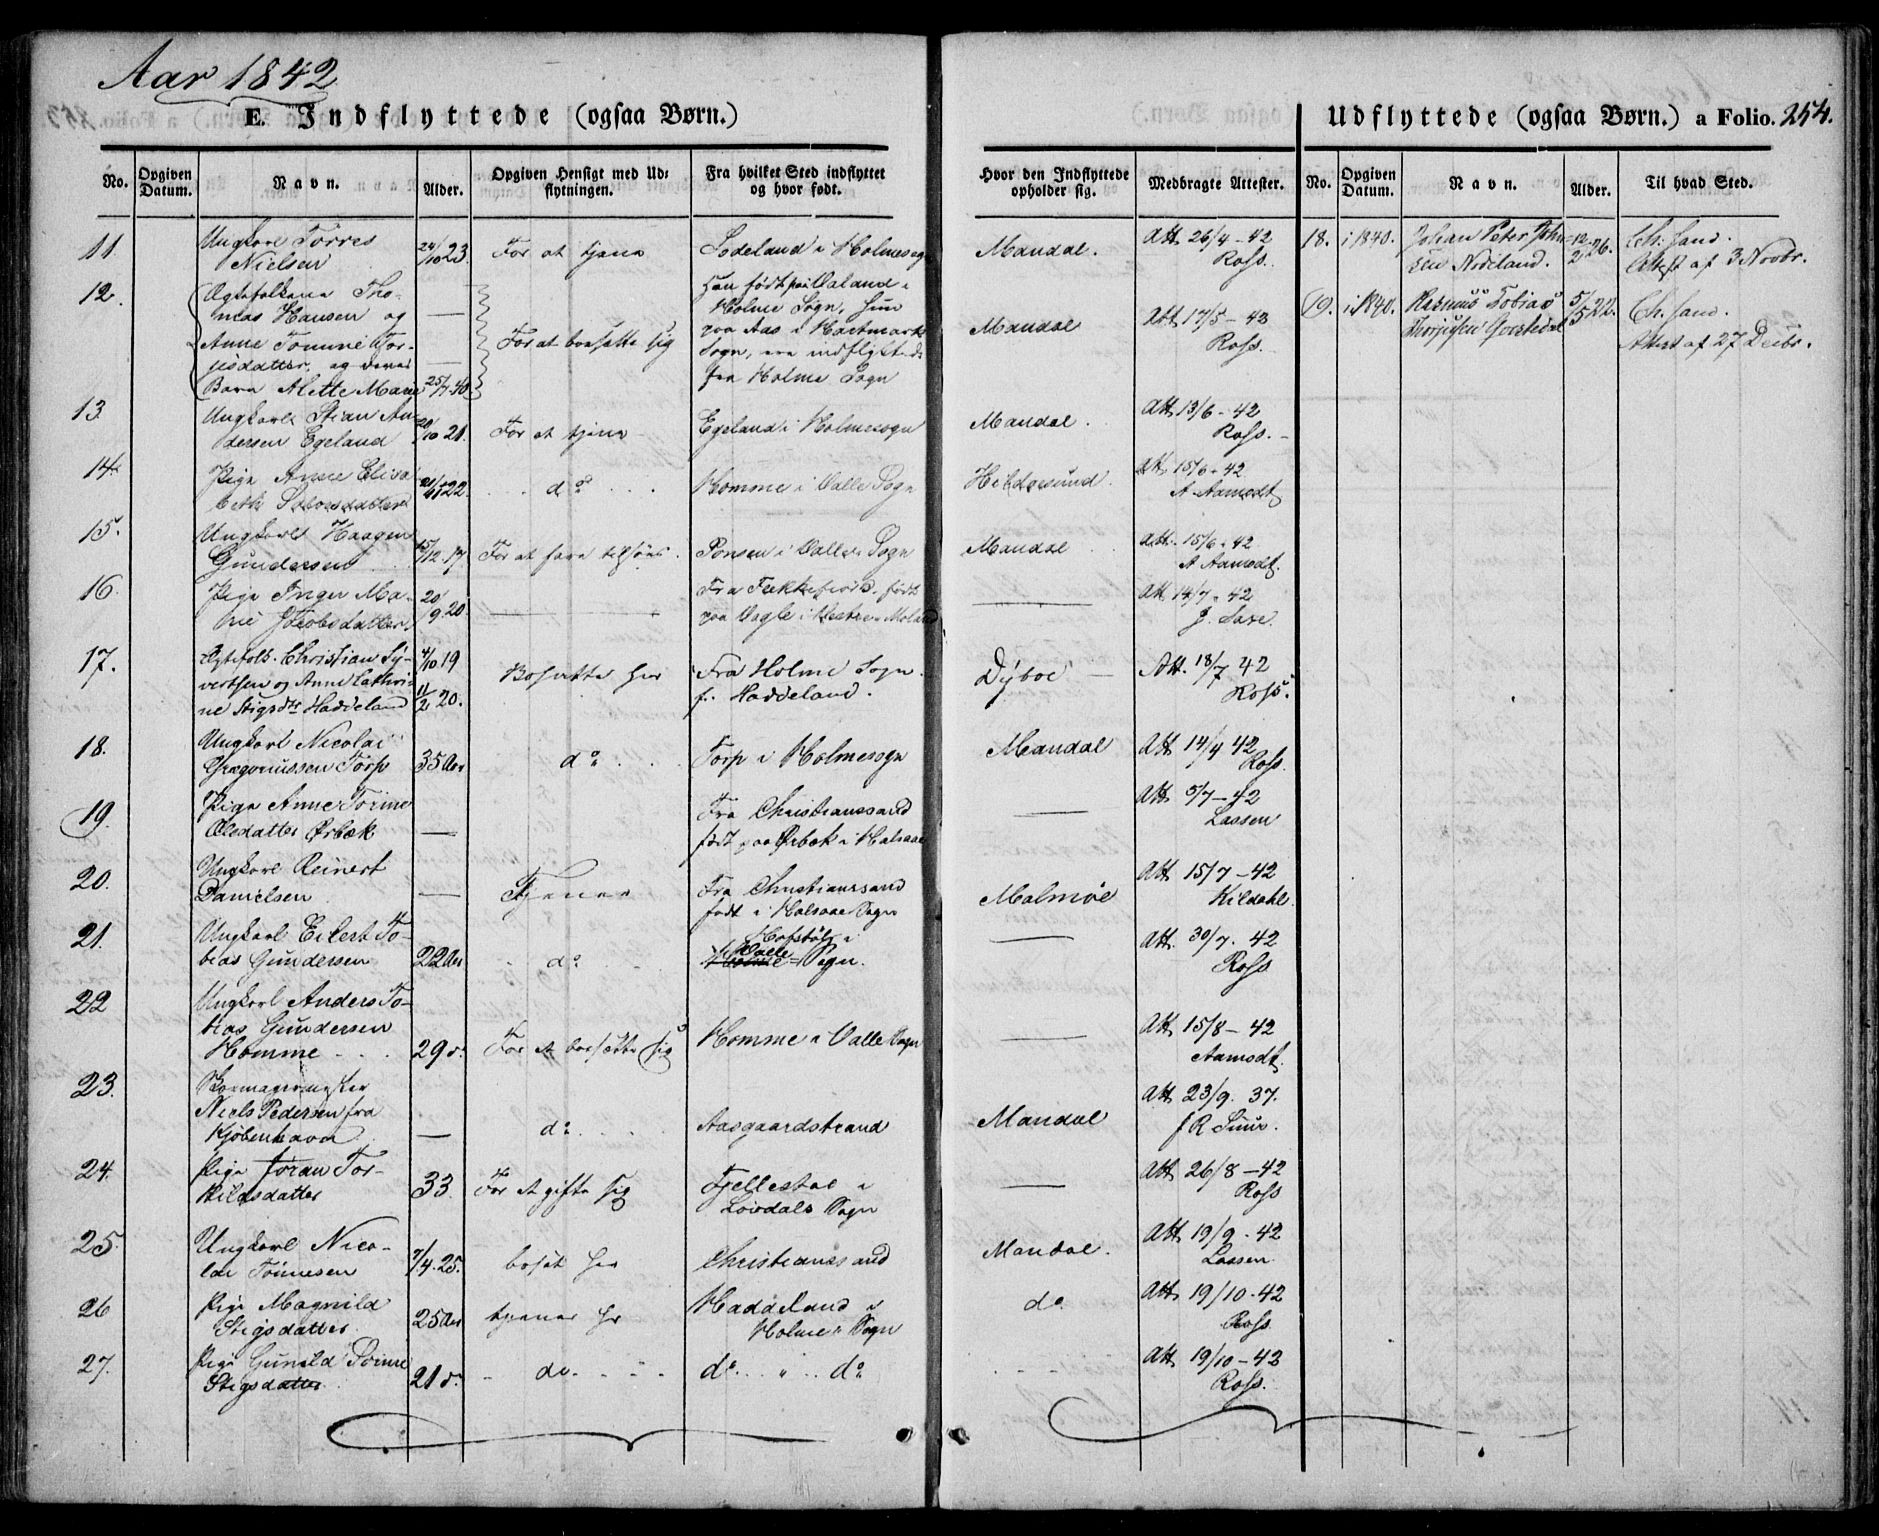 Aar 1842
E. Indflyttede (ogsaa Børn.)
Udflyttede (ogsaa Børn.) a Folio. 254.
No. Opgiven Datum. Navn. Alder. Opgiven Hensigt med Udflytningen. Fra hvilket Sted indflyttet og hvor født. Hvor den Indflyttede opholder sig. Medbragte Attester.
No. Opgiven Datum. Navn. Alder. Til hvad Sted.
11. Ungkarl Torres
Nielsen 24/10 23. For at tjene Mandal. Att. 26/4 - 42
Ross.
12. Ægtefolkene Tho-
mas Hansen og —
Anne Tomine Tor-
jisdatter, og deres —
Barn Alette Marie 25/7 40.
For at bosætte sig
Han født paa
Holme Sogn, hun
paa Aas i Hartmark
Sogn, ere indflyttede
fra Holme Sogn
Mandal Att. 17/5 - 43
Ross.
13. Ungkarl Stian An-
dersen Egeland 21. For at tjene Egeland i Holmesogn Mandal. Att. 13/6 - 42
Ross.
14. Pige Anne Elisa-
beth 22. do Homme i Valle Sogn Att. 15/6 - 42
A Aamodt
15. Ungkarl Haagen
Gundersen 15/12 17 For at fare tilsøes. i Valle Sogn Mandal Att. 15/6 - 42
A Aamodt.
16. Pige Inger Ma-
rie Jacobsdatter 20/9 20. — Fra Flekkefiord, født
paa Vagle i — Att. 14/7 - 42
17. Ægtefolk Christian Sy- 4/10 19
vertsen og Anne Cathri- 11
ne Stigsdtr Haddeland 2 20.
Bosatte her Fra Holme Sogn
f. Haddeland. Dyboe Att. 18/7 42
Ross.
18. Ungkarl Nicolai
Gregoriussen Torp 35 Aar do Torp i Holmesogn Mandal Att. 14/4 42
Ross.
19. Pige Anne Torine
Olsdatter Ørbæk — Fra Christianssand
født paa Ørbæk i Halsaae — Att. 5/7 - 42
Lassen
20. Ungkarl Reinert
Danielsen — Tjener Fra Christianssand
født i Halsaae Sogn Malmøe Att. 15/7 - 42
Kildahl.
21. Ungkarl Eilert To-
bias Gundersen 22 Aar do Hofstøl i
Valle
Holme Sogn. — Att. 30/7. 42
Ross
22 Ungkarl Anders To-
bias Gundersen
Homme 29 d. For at bosætte sig Homme i Valle Sogn — Att. 15/8 - 42
Aamodt.
23. Skomagermester
Niels Pedersen fra
Kjøbenhavn — do. Aasgaardstrand Mandal Att. 23/9. 37.
24. Pige Joran Tor-
kildsdatter 33. For at gifte sig Fjellestad i
Løvdals Sogn — Att. 26/8 - 42
Ross
25. Ungkarl Nico-
lai Tønnesen 7/4. 25. bosat her Christianssand Mandal. Att. 19/9. 42
Lassen.
26 Pige Magnild
Stigsdatter 25 Aar tjener her Haddeland i
Holme Sogn do. Att. 19/10 - 42
Ross.
27. Pige Gunild Torine
Stigsdatter. 21 d. do. do . . do Att. 19/10 - 42
Ross.
18. i 1840. Johan Peter John-
sen Nideland. 26. Ch. sand.
Attest af 3 Novbr.
19. i 1840. Rasmus Tobias 5/5 22. Ch. sand.
Attest af 27 Decbr.